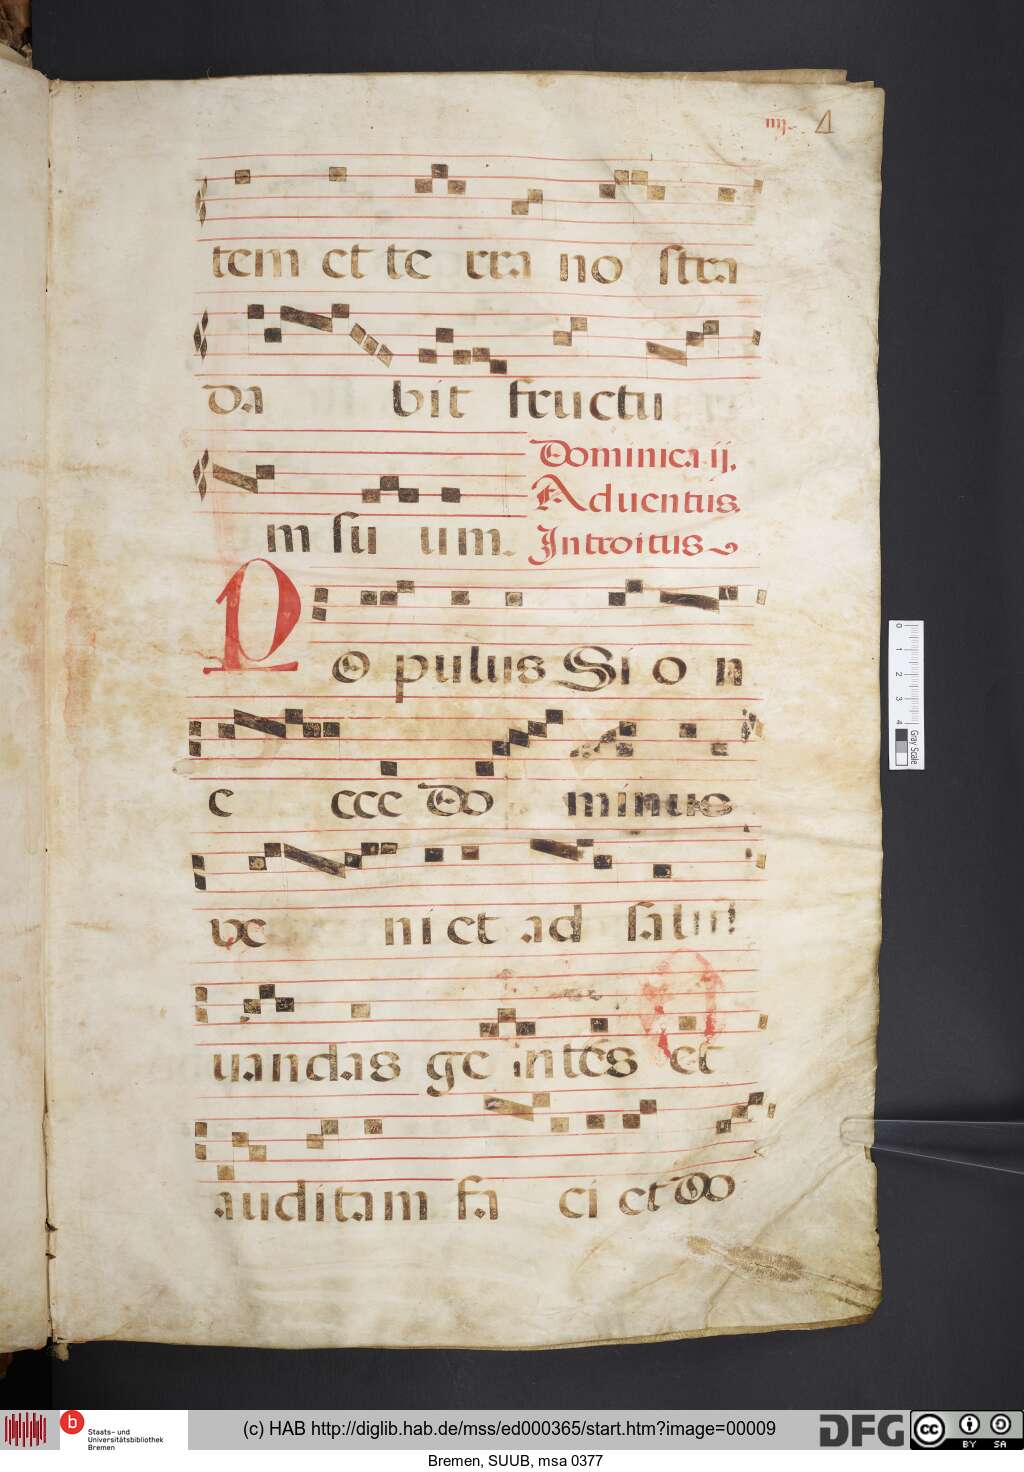 iiij. 4
tem et te rra no stra
da bit fructu
m su um.
Dominica ij.
Aduentus.
Introitus
Populus Si o n
e ccc Do minus
ve niet ad salu
uandas ge ntes et
auditam fa ci et Do
0 1 2 3 4
Gray Scale
Staats- und
Universitätsbibliothek
Bremen
(c) HAB http://diglib.hab.de/mss/ed000365/start.htm?image=00009
DFG
cc BY SA
Bremen, SUUB, msa 0377